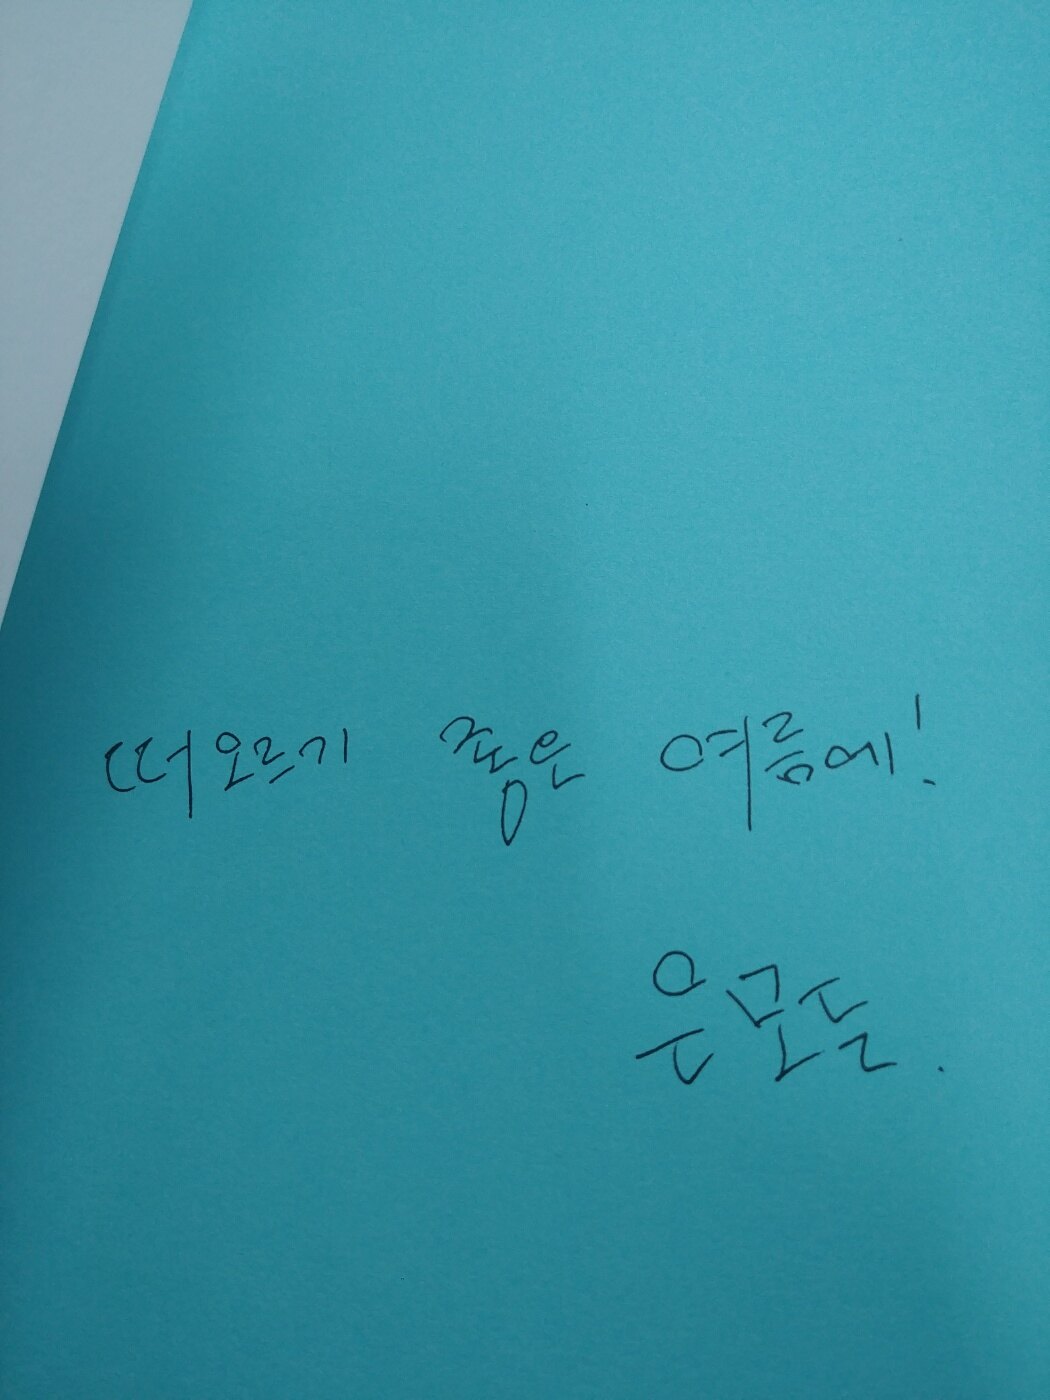 떠오르기 좋은 여름에!
은모든.